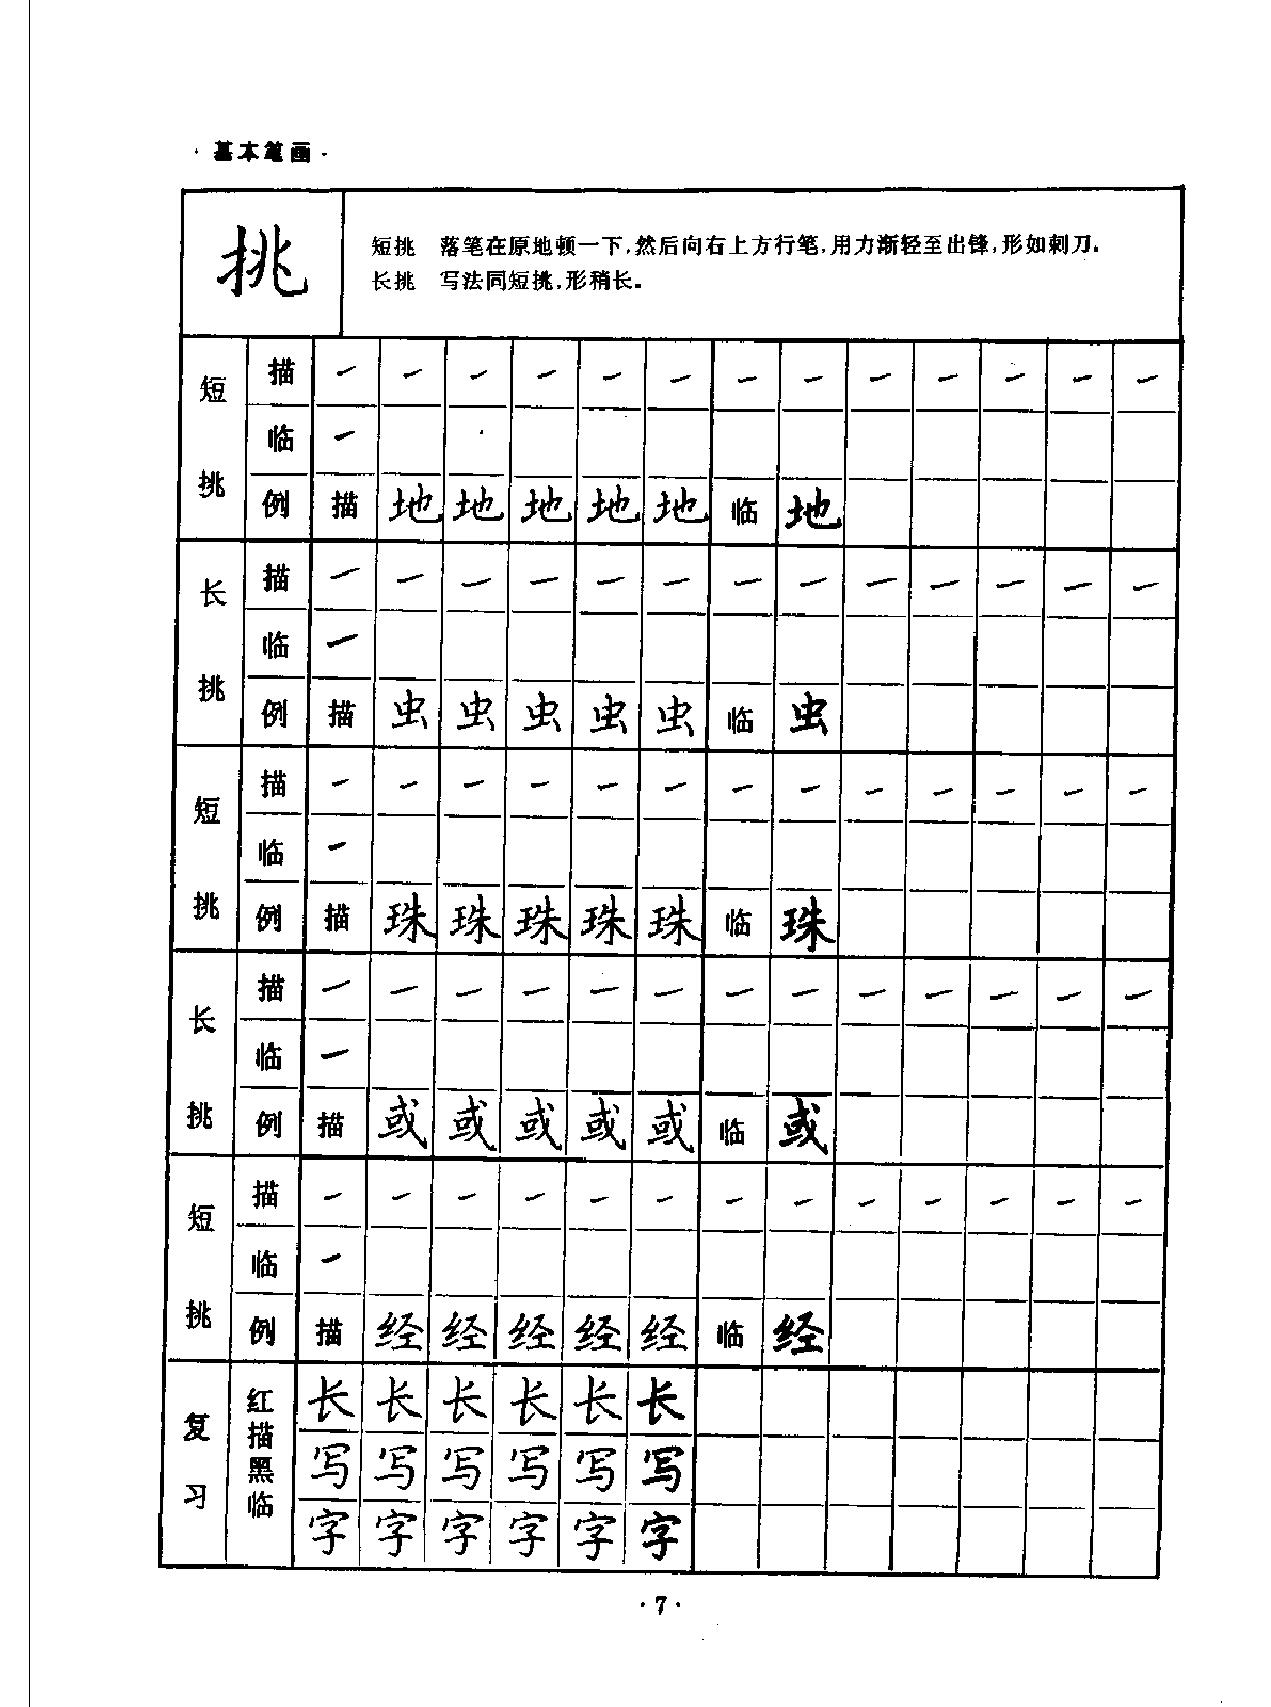 ·基本笔画·
挑
短挑 落笔在原地顿一下,然后向右上方行笔,用力渐轻至出锋,形如刺刀。
长挑 写法同短挑,形稍长。
短挑
描 ㇀ ㇀ ㇀ ㇀ ㇀ ㇀ ㇀ ㇀ ㇀ ㇀ ㇀ ㇀ ㇀
临 ㇀
例 描 地 地 地 地 地 临 地
长挑
描 ㇀ ㇀ ㇀ ㇀ ㇀ ㇀ ㇀ ㇀ ㇀ ㇀ ㇀ ㇀ ㇀
临 ㇀
例 描 虫 虫 虫 虫 虫 临 虫
短挑
描 ㇀ ㇀ ㇀ ㇀ ㇀ ㇀ ㇀ ㇀ ㇀ ㇀ ㇀ ㇀ ㇀
临 ㇀
例 描 珠 珠 珠 珠 珠 临 珠
长挑
描 ㇀ ㇀ ㇀ ㇀ ㇀ ㇀ ㇀ ㇀ ㇀ ㇀ ㇀ ㇀ ㇀
临 ㇀
例 描 或 或 或 或 或 临 或
短挑
描 ㇀ ㇀ ㇀ ㇀ ㇀ ㇀ ㇀ ㇀ ㇀ ㇀ ㇀ ㇀ ㇀
临 ㇀
例 描 经 经 经 经 经 临 经
复习
红描黑临
长 长 长 长 长 长
写 写 写 写 写 写
字 字 字 字 字 字
·7·